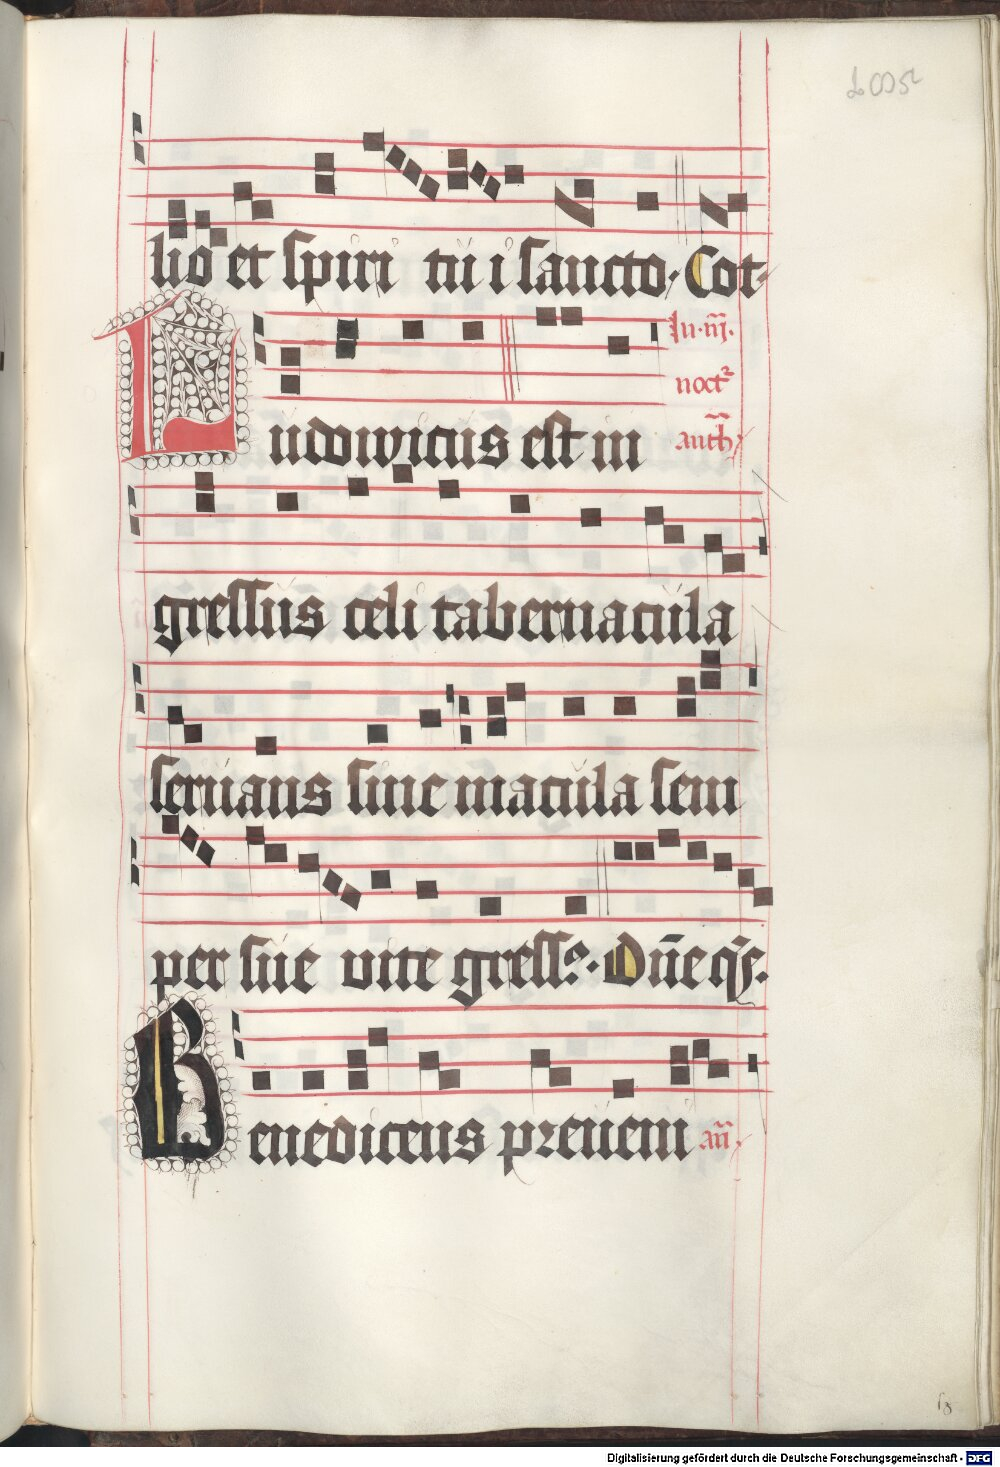 lio et spiri tu i sancto. Cot.
In .iij.
noct
Ludowicus est in
anth
gressus celi tabernacula
seruans sine macula sem
per sue vite gress9. Dn̄e q̄s.
Benedicens preueni an̄.
Digitalisierung gefördert durch die Deutsche Forschungsgemeinschaft - DFG